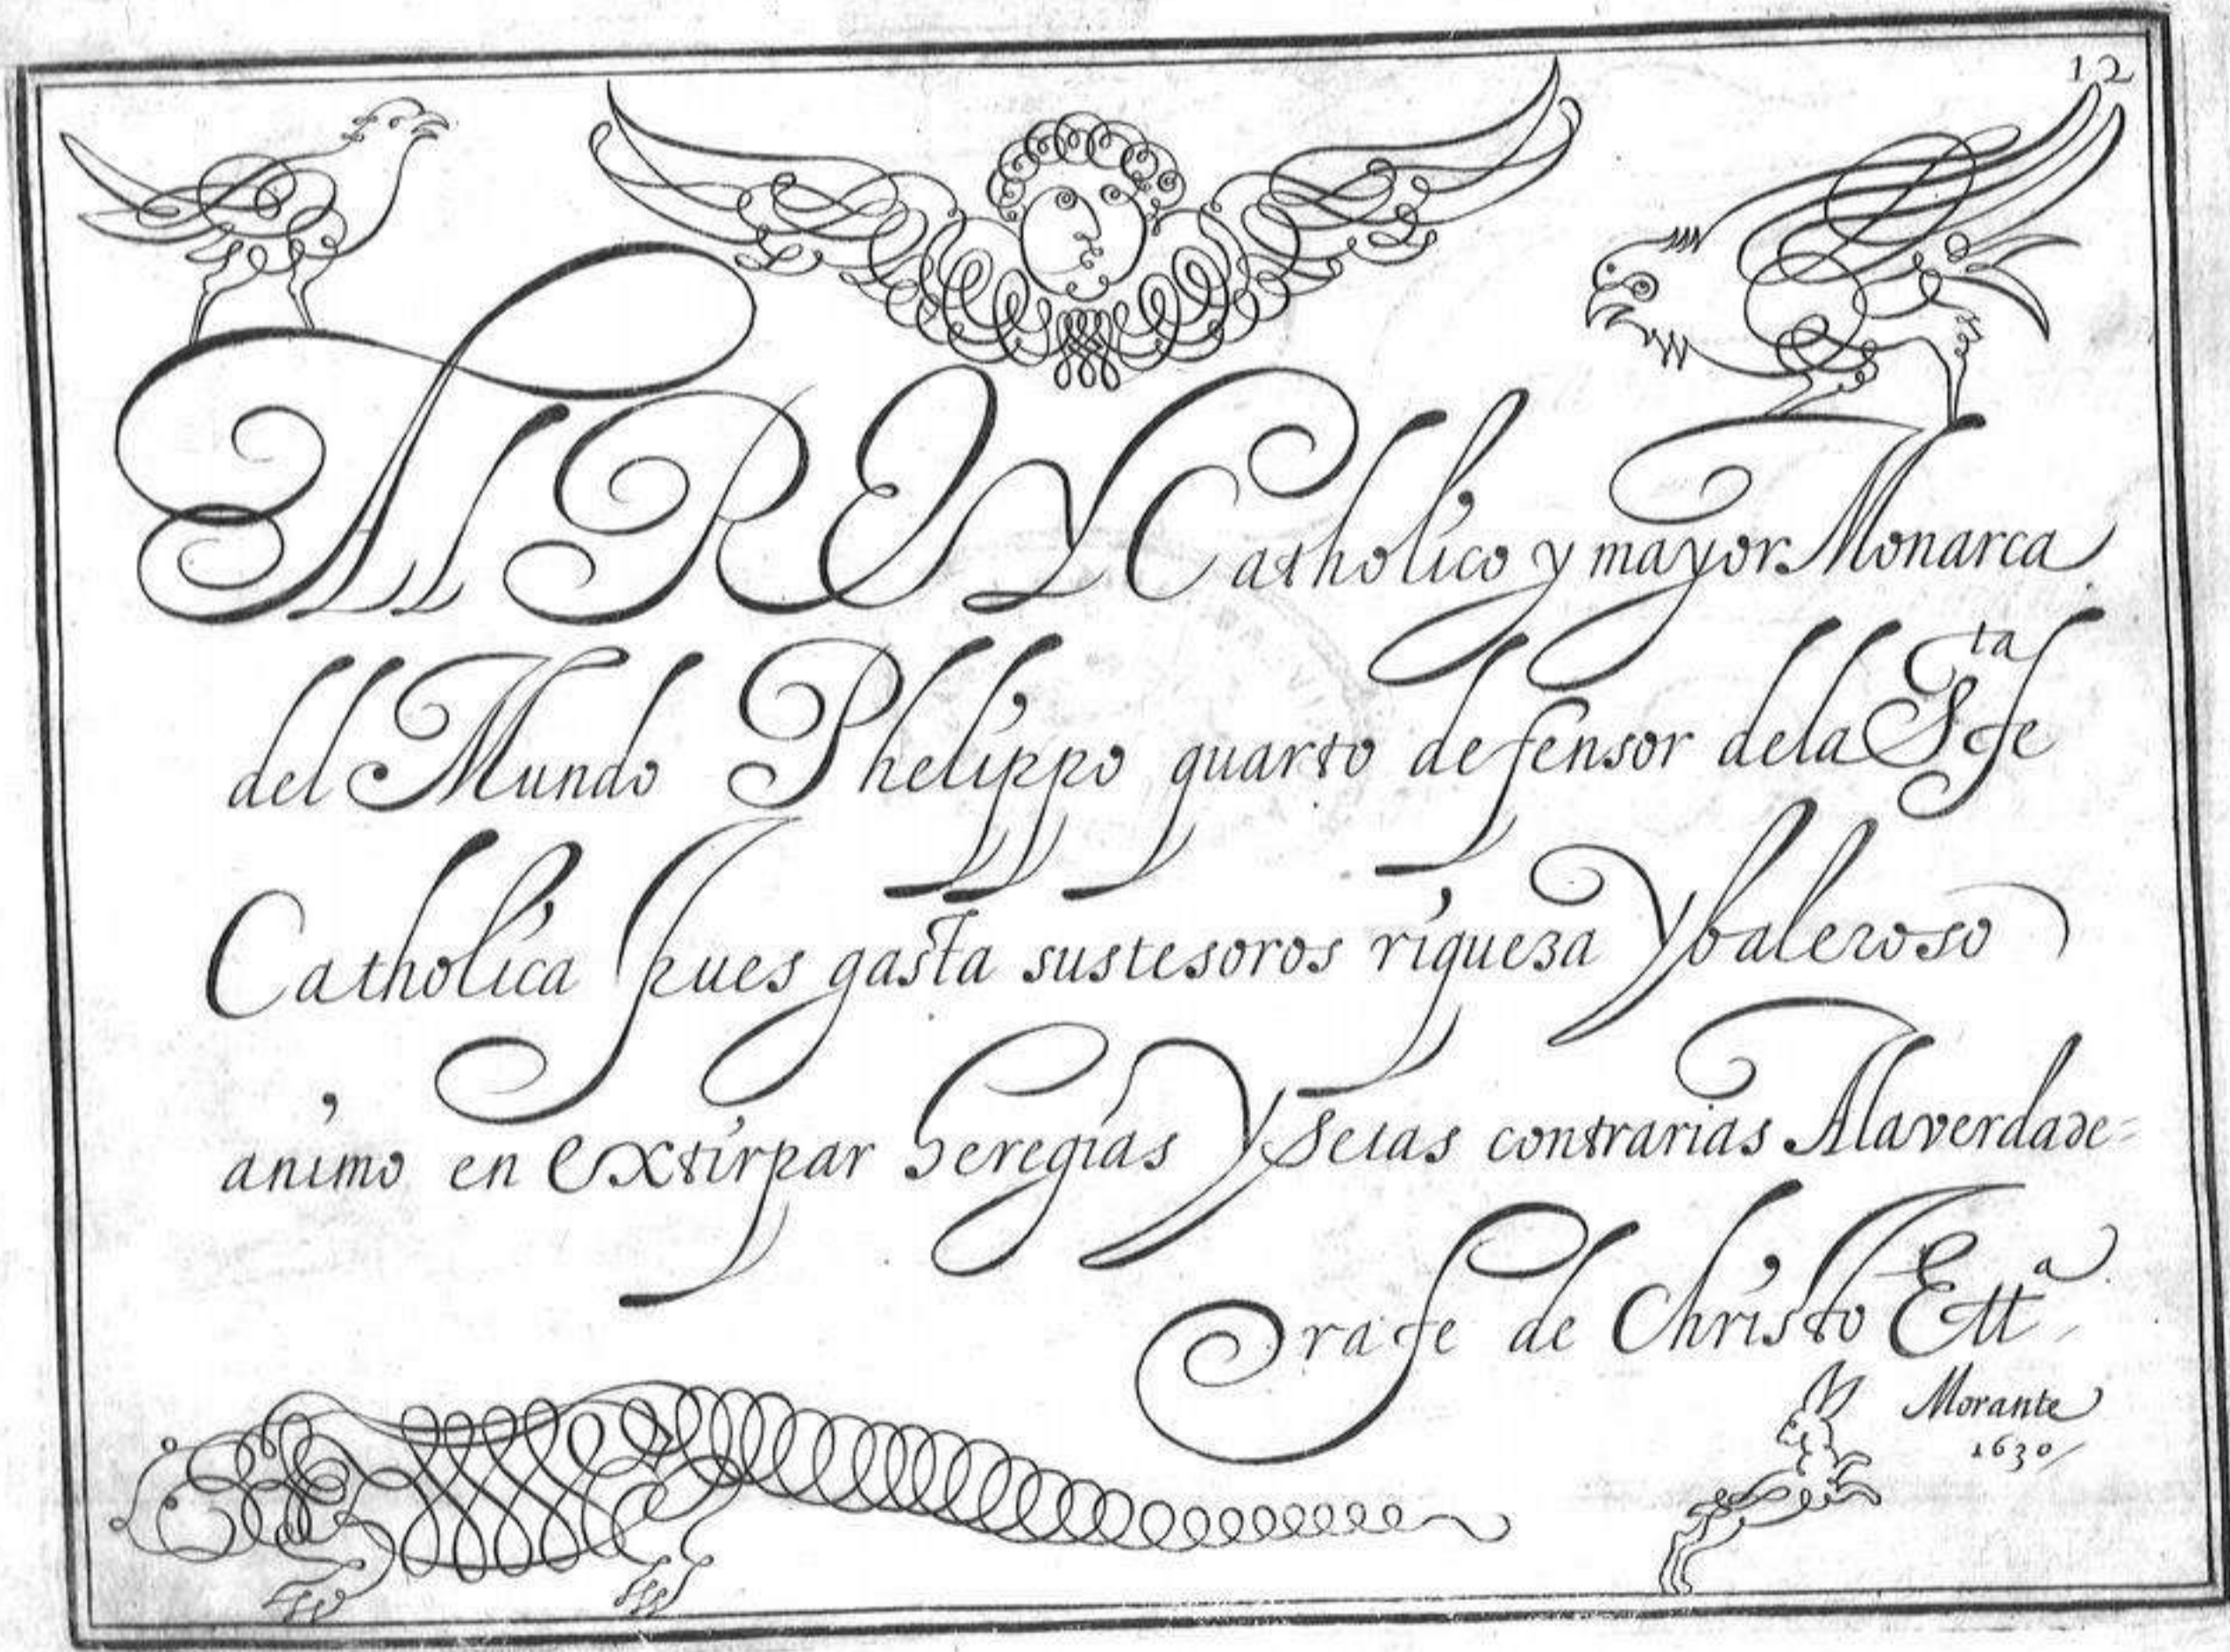 12
Al REY Catholico y mayor Monarca
del Mundo Phelippo quarto defensor dela S^ta fe
Catholica pues gasta sustesoros riqueza Y baleroso
animo en extirpar heregias Y setas contrarias Alaverdade=
ra fe de Christo Ett^a
Morante
1630